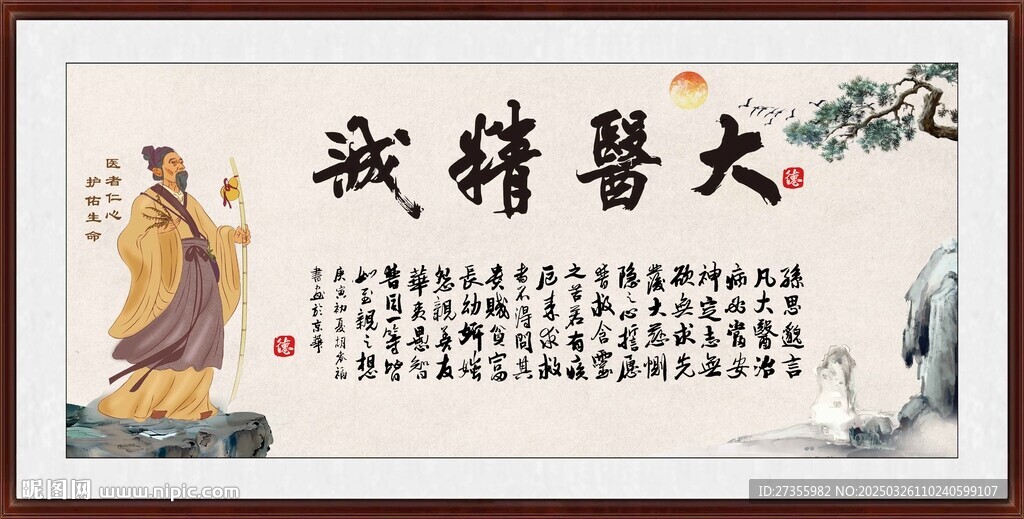 大醫精誠
德
孫思邈言
凡大醫治
病必當安
神定志無
欲無求先
發大慈惻
隐之心誓愿
普救含靈
之苦若有疾
厄来求救
者不得問其
貴賤貧富
長幼妍媸
怨親善友
華夷愚智
普同一等皆
如至親之想
庚寅初夏
書於京華
德
医者仁心
护佑生命
昵图网 www.nipic.com
ID:27355982 NO:20250326110240599107